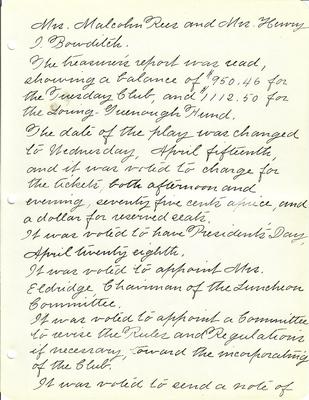 Mrs. Malcolm Rees and Mrs. Henry
I. Bowditch.
The treasurer's report was read,
showing a balance of $950.46 for
the Tuesday Club, and $1112.50 for
the Loring-Greenough Fund.
The date of the play was changed
to Wednesday, April fifteenth,
and it was voted to charge for
the tickets, both afternoon and
evening, seventy five cents apiece, and
a dollar for reserved seats.
It was voted to have Presidents' Day,
April twenty eighth.
It was voted to appoint Mrs.
Eldridge Chairman of the Luncheon
Committee.
It was voted to appoint a Committee
to revise the Rules and Regulations
if necessary, toward the incorporating
of the Club.
It was voted to send a note of